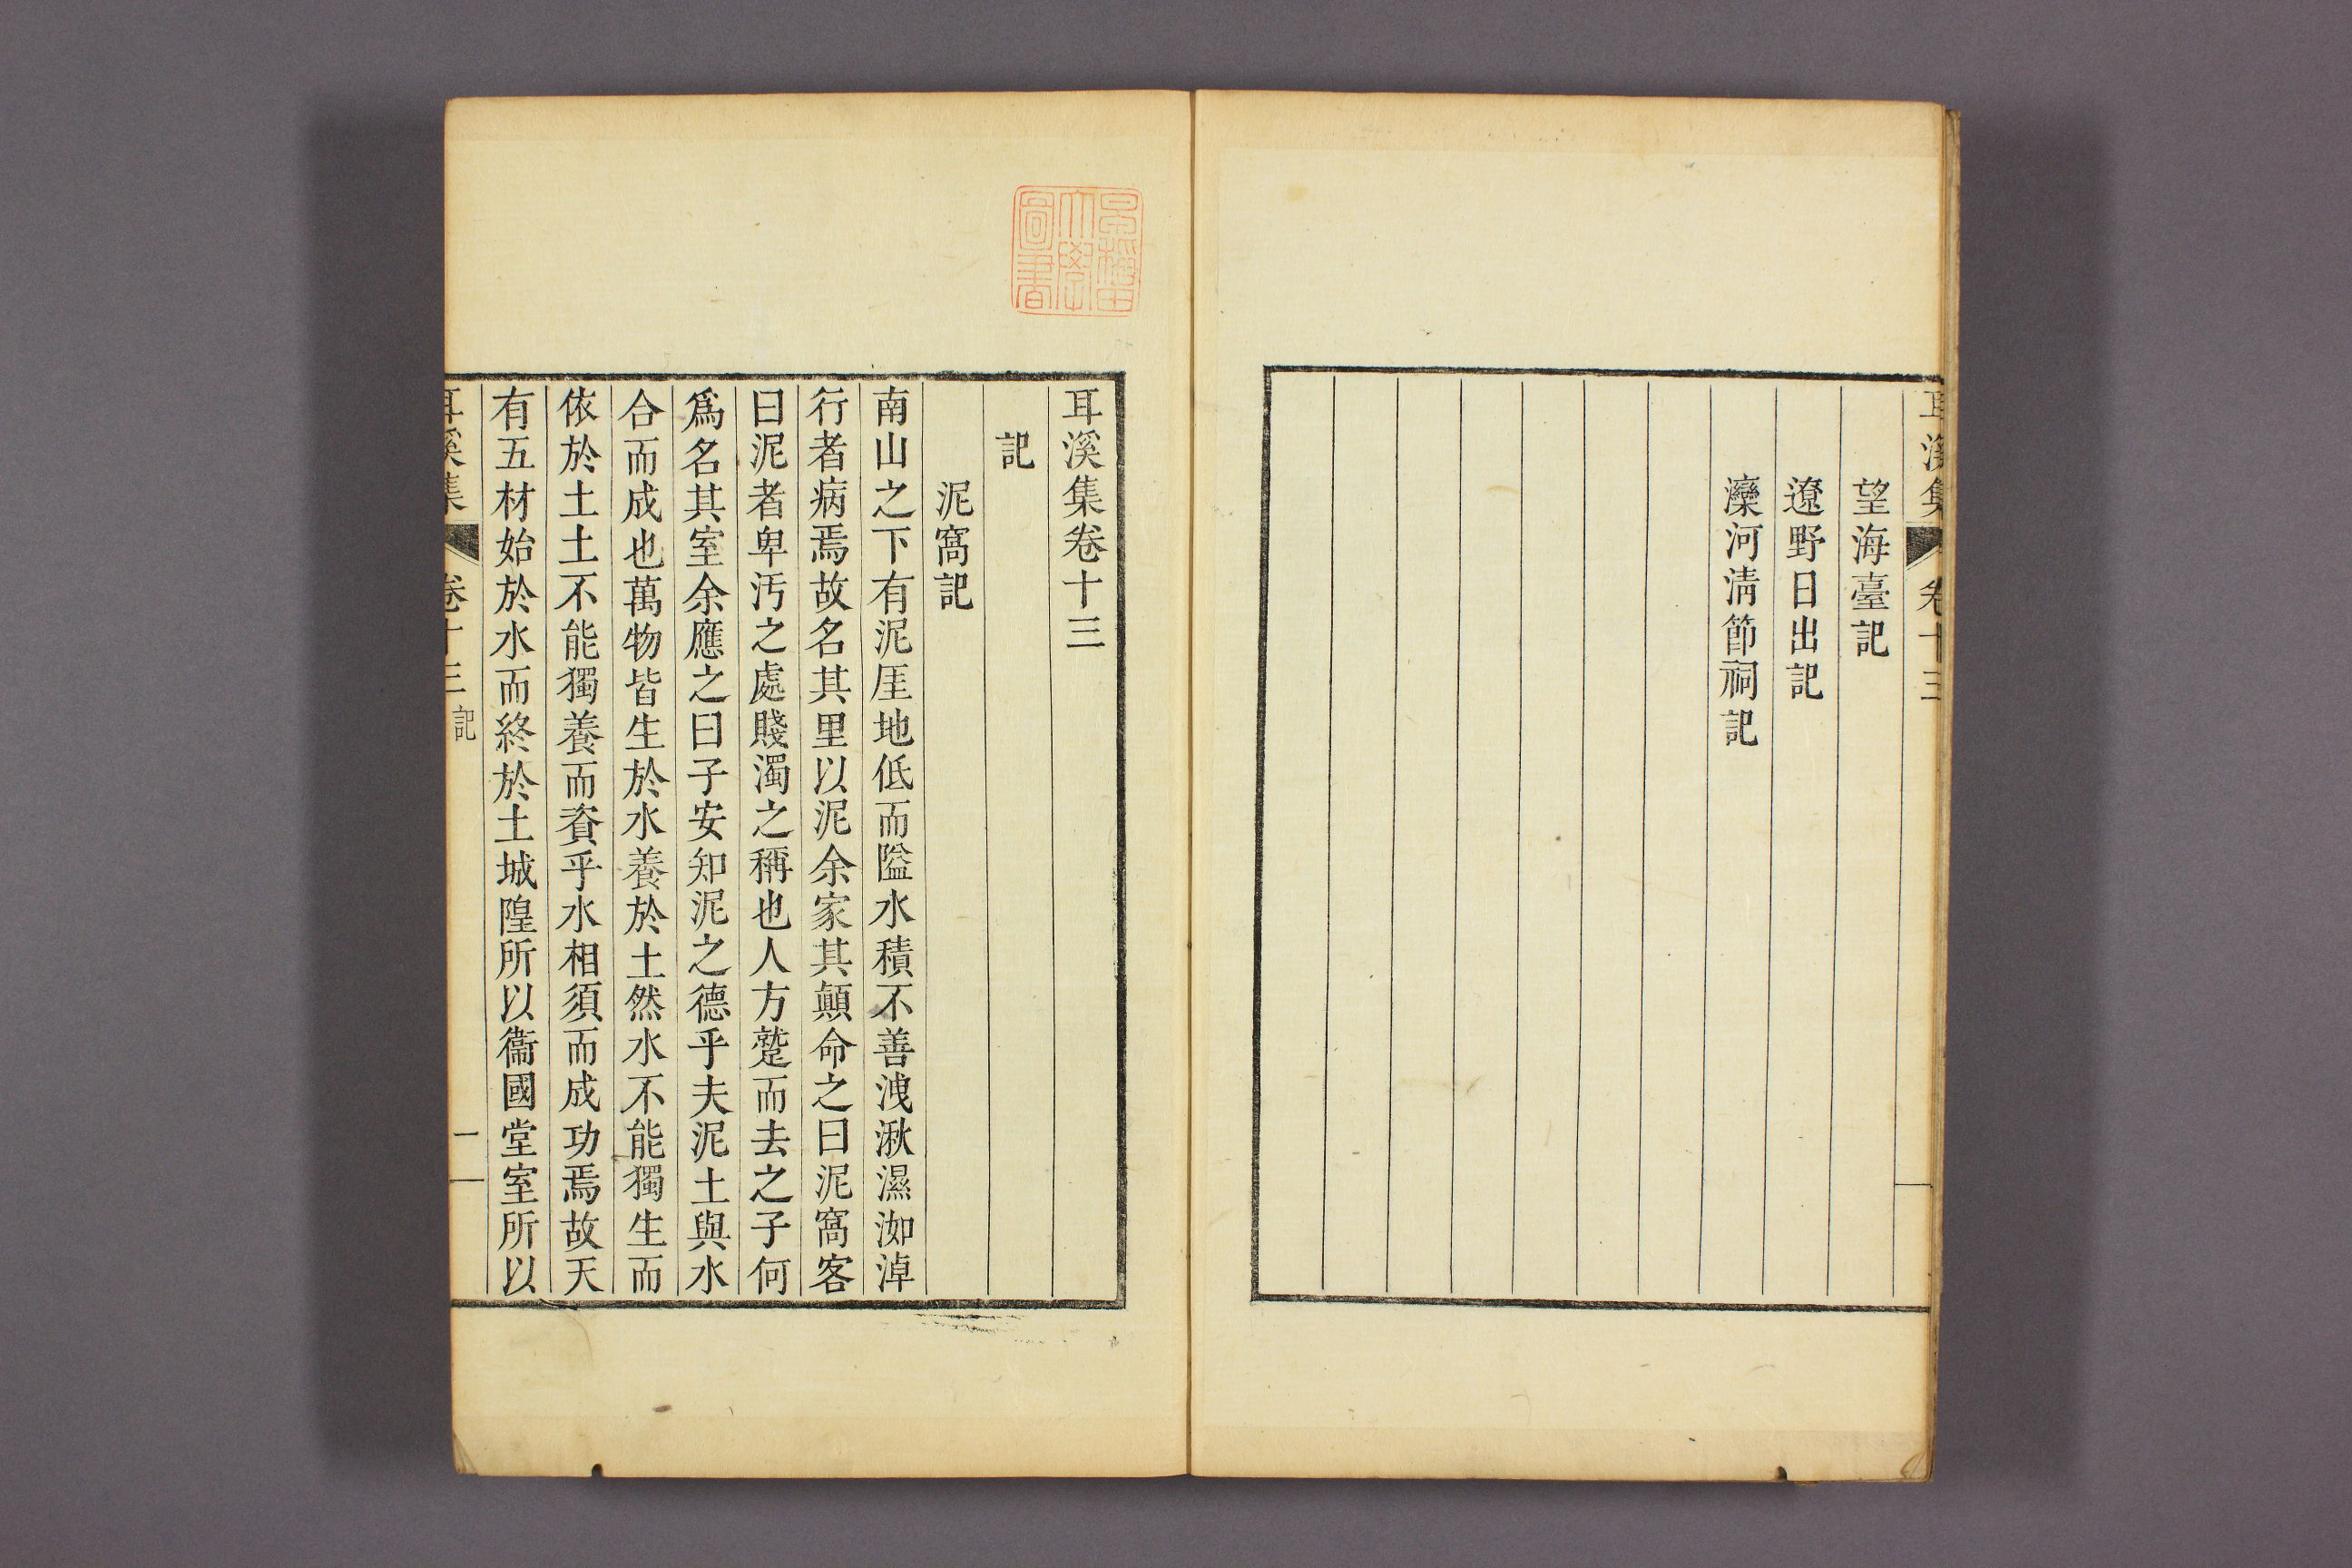 耳溪集 卷十三
望海臺記
遼野日出記
灤河淸節祠記
早稻田大學圖書
耳溪集卷十三
記
泥窩記
南山之下有泥厓地低而隘水積不善洩湫濕洳淖
行者病焉故名其里以泥余家其顚命之曰泥窩客
曰泥者卑汚之處賤濁之稱也人方蹩而去之子何
爲名其室余應之曰子安知泥之德乎夫泥土與水
合而成也萬物皆生於水養於土然水不能獨生而
依於土土不能獨養而資乎水相須而成功焉故天
有五材始於水而終於土城隍所以衞國堂室所以
耳溪集 卷十三 記 一